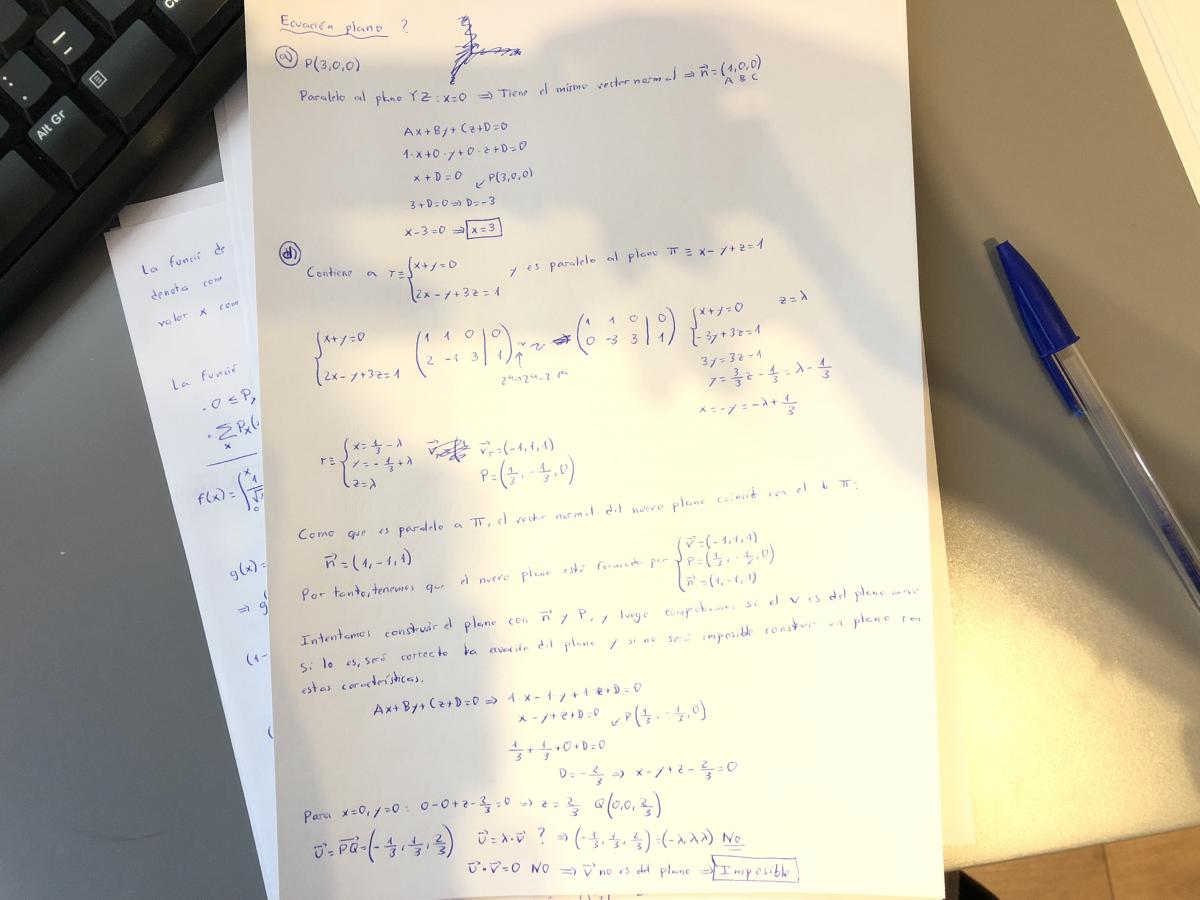 Ecuación plano ?
a) P(3,0,0)
Paralelo al plano YZ: x=0 ⇒ Tiene el mismo vector normal ⇒ n⃗=(1,0,0)
A B C
Ax+By+Cz+D=0
1·x+0·y+0·z+D=0
x+D=0 ↙ P(3,0,0)
3+D=0 ⇒ D=-3
x-3=0 ⇒ x=3
d) Contiene a r≡ { x+y=0 y es paralelo al plano π ≡ x-y+z=1
2x-y+3z=1
{ x+y=0 ( 1 1 0 | 0 ) ~ ( 1 1 0 | 0 ) { x+y=0 z=λ
2x-y+3z=1 ( 2 -1 3 | 1 ) ( 0 -3 3 | 1 ) -3y+3z=1
2ª→2ª-2·1ª
3y=3z-1
y=3/3 z - 1/3 = λ - 1/3
x=-y=-λ+1/3
r≡ { x=1/3-λ v⃗r=(-1,1,1)
y=-1/3+λ P=(1/3,-1/3,0)
z=λ
Como que es paralelo a π, el vector normal del nuevo plano coincide con el de π:
n⃗=(1,-1,1)
Por tanto, tenemos que el nuevo plano está formado por { v⃗=(-1,1,1)
P=(1/3,-1/3,0)
n⃗=(1,-1,1)
Intentamos construir el plano con n⃗ y P, y luego comprobamos si el v es del plano nuevo
Si lo es, será correcto la ecuación del plano y si no será imposible construir un plano con
estas características.
Ax+By+Cz+D=0 ⇒ 1·x-1·y+1·z+D=0
x-y+z+D=0 ↙ P(1/3,-1/3,0)
1/3+1/3+0+D=0
D=-2/3 ⇒ x-y+z-2/3=0
Para x=0, y=0: 0-0+z-2/3=0 ⇒ z=2/3 Q(0,0,2/3)
U⃗=PQ⃗=(-1/3,1/3,2/3) U⃗=λ·v⃗ ? ⇒ (-1/3,1/3,2/3)=(-λ,λ,λ) No
U⃗·v⃗=0 NO ⇒ v⃗ no es del plano ⇒ Imposible
Alt Gr
La funció de
denota com
valor x com
La funció
· 0 ≤ P
· Σ Px(
x
f(x)=
g(x)=
(1-